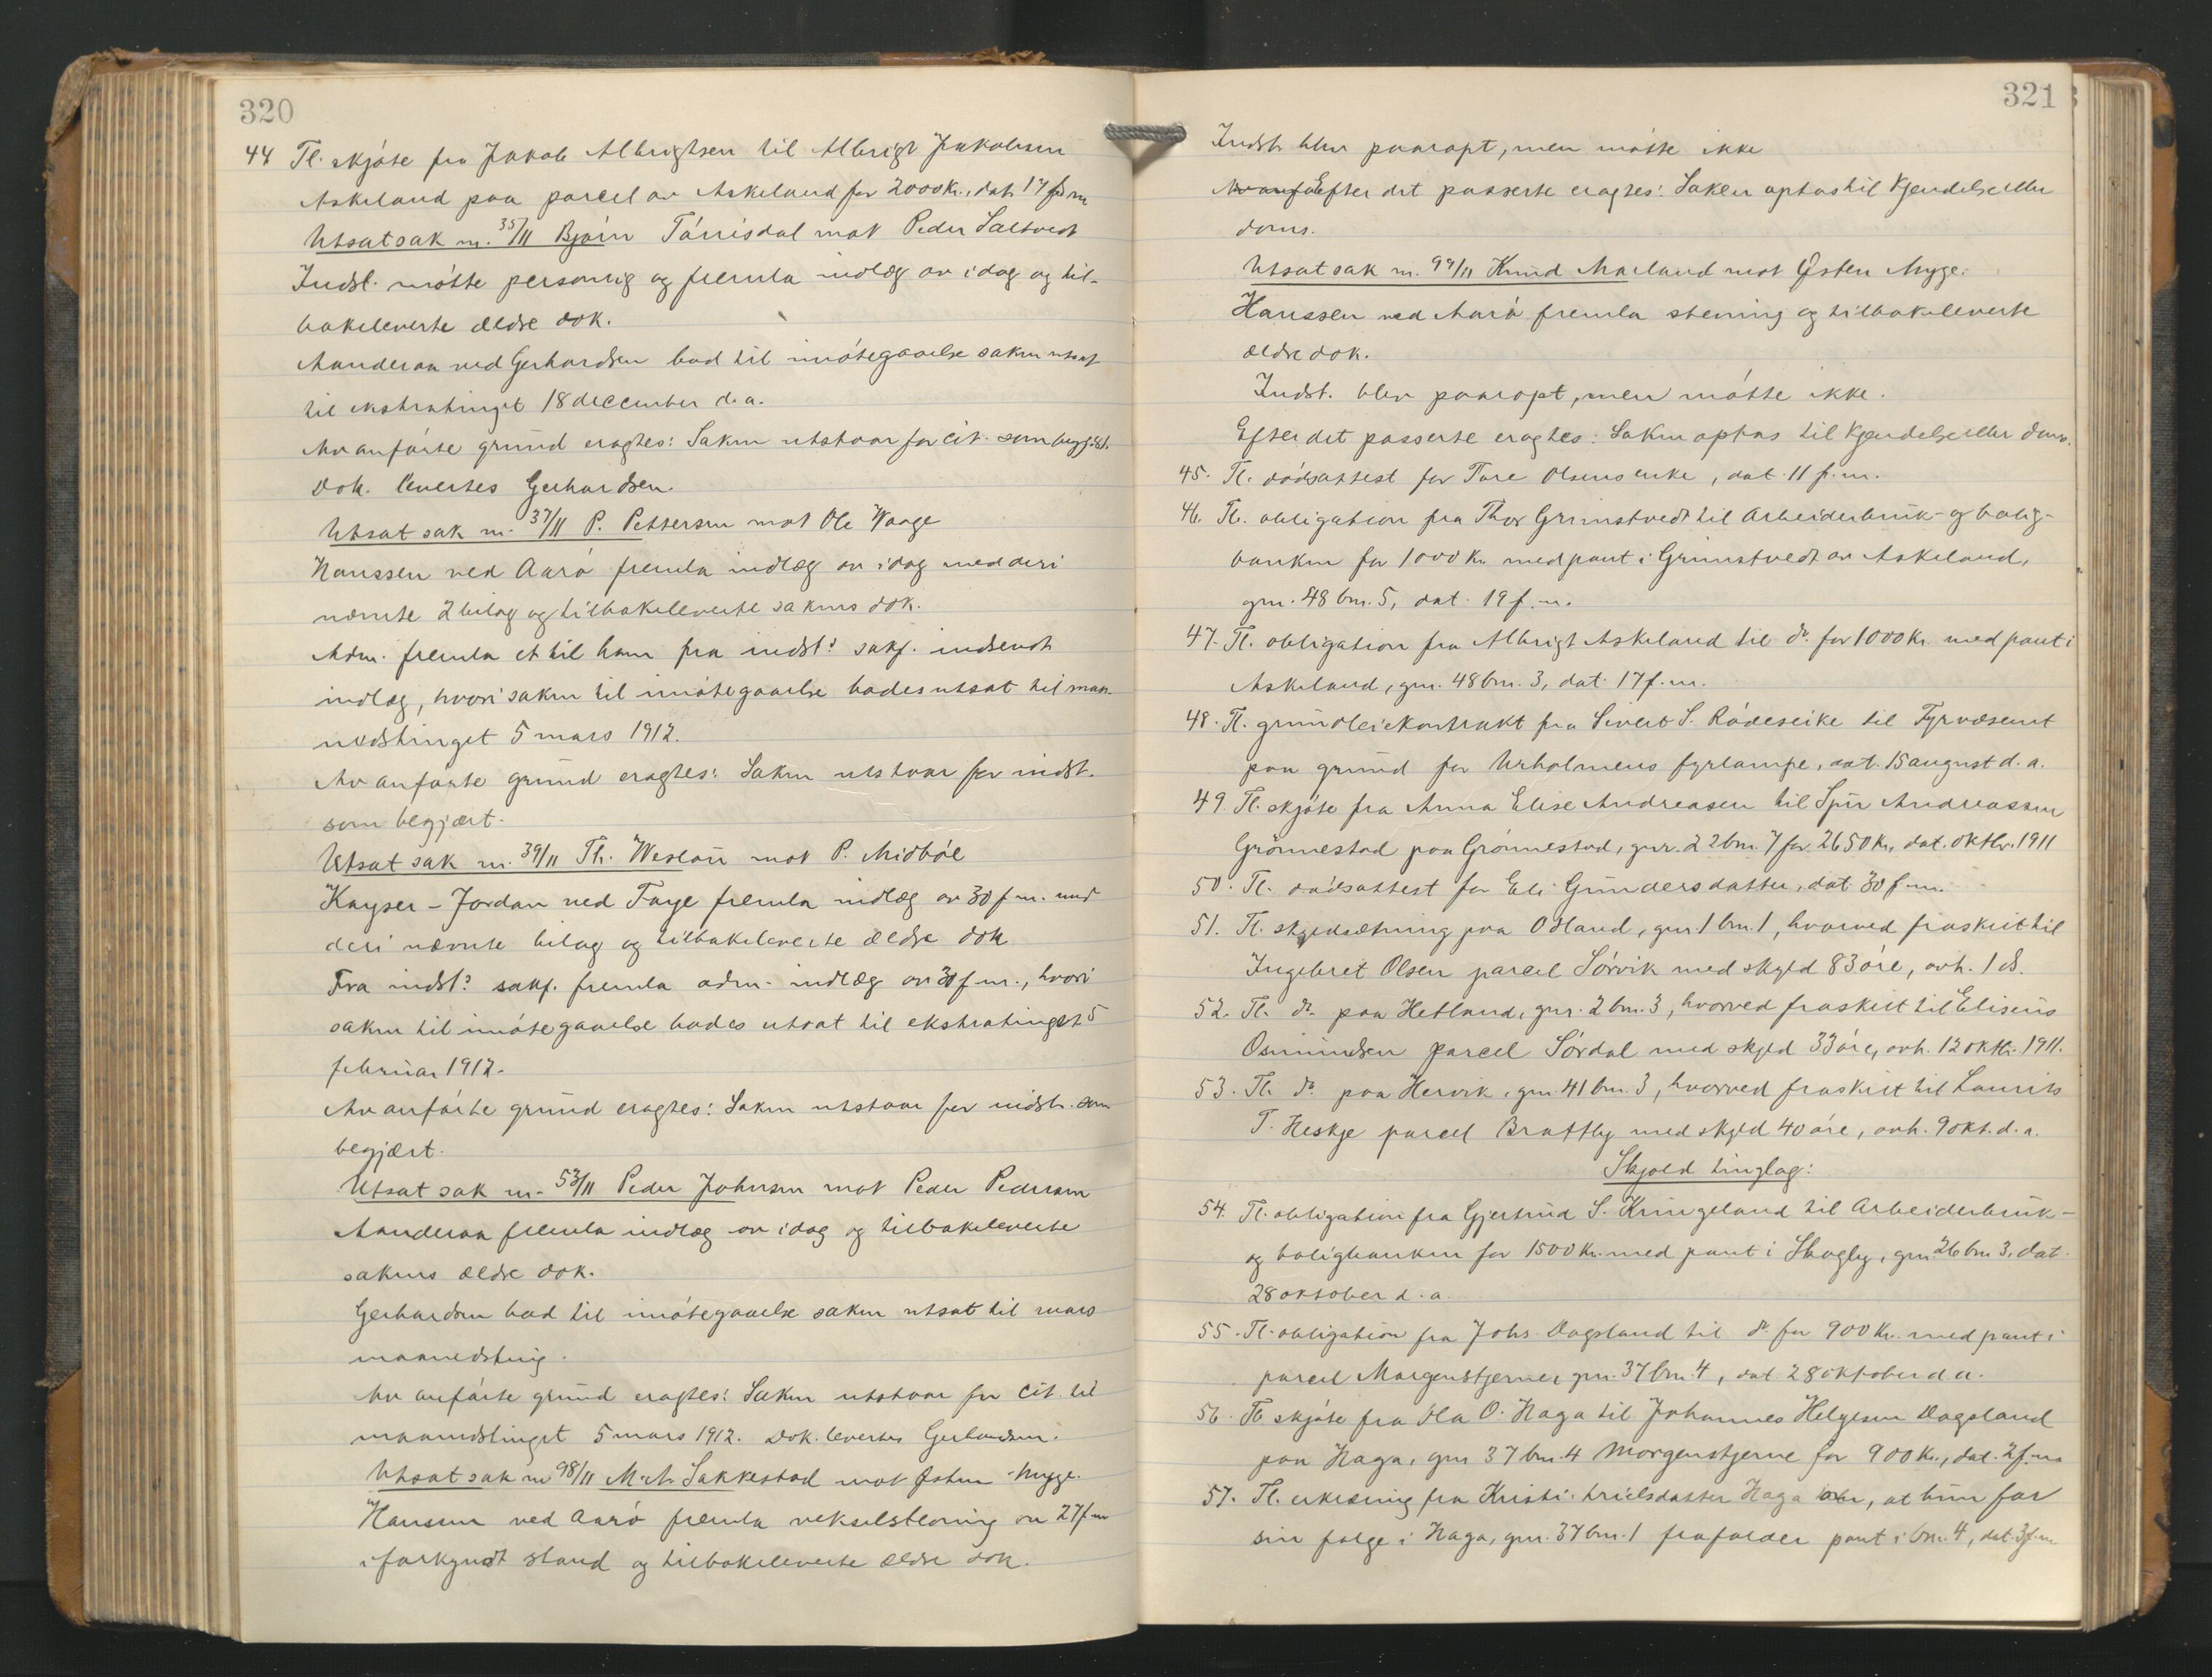 320
44 Tl. skjøte fra Jakob Albrigtsen til Albrigt Jakobsen
Askeland paa parcel av Askeland for 2000 Kr., dat. 17 f.m.
Utsat sak nr. 35/11 Bjørn Tørrisdal mot Peder Saltvedt
Indst. møtte personlig og fremla indlæg av idag og til-
bakeleverte ældre dok.
Aanderaa ved Gerhardsen bad til imøtegaaelse saken utsat
til ekstratinget 18 december d.a.
Av anførte grund eragtes: Saken utstaar for cit. som begjært.
Dok. levertes Gerhardsen.
Utsat sak nr. 37/11 P. Pettersen mot Ole Waage
Hanssen ved Aarø fremla indlæg av idag med deri
nævnte 2 bilag og tilbakeleverte sakens dok.
Adm. fremla et til ham fra indst.s sakf. indsendt
indlæg, hvori saken til imøtegaaelse bades utsat til maa-
nedstinget 5 mars 1912.
Av anførte grund eragtes: Saken utstaar for indst.
som begjært.
Utsat sak nr. 39/11 Th. Weslau mot P. Midbøe
Kayser-Jordan ved Faye fremla indlæg av 30 f.m. med
deri nævnte bilag og tilbakeleverte ældre dok.
Fra indst.s sakf. fremla adm. indlæg av 30 f.m., hvori
saken til imøtegaaelse bades utsat til ekstratinget 5
februar 1912.
Av anførte grund eragtes: Saken utstaar for indst. som
begjært.
Utsat sak nr. 53/11 Peder Johnsen mot Peder Pedersen
Aanderaa fremla indlæg av idag og tilbakeleverte
sakens ældre dok.
Gerhardsen bad til imøtegaaelse saken utsat til mars
maanedsting.
Av anførte grund eragtes: Saken utstaar for cit. til
maanedstinget 5 mars 1912. Dok. levertes Gerhardsen.
Utsat sak nr. 98/11 M. A. Sakkestad mot Østen Mygge.
Hanssen ved Aarø fremla vekselstevning av 27 f.m.
i forkyndt stand og tilbakeleverte ældre dok.
321
Indst. blev paaropt, men møtte ikke
Av anfø Efter det passerte eragtes: Saken optas til Kjendelse eller
doms.
Utsat sak nr. 99/11 Knud Maeland mot Østen Mygge.
Hanssen ved Aarø fremla stevning og tilbakeleverte
ældre dok.
Indst. blev paaropt, men møtte ikke.
Efter det passerte eragtes: Saken optas til Kjendelse eller doms.
45. Tl. dødsattest for Tore Olsens enke, dat. 11 f.m.
46. Tl. obligation fra Thor Grimstvedt til Arbeiderbruk- og bolig-
banken for 1000 Kr. med pant i Grimstvedt av Askeland,
gnr. 48 bnr. 5, dat. 19 f.m.
47. Tl. obligation fra Albrigt Askeland til do. for 1000 Kr. med pant i
Askeland, gnr. 48 bnr. 3, dat. 17 f.m.
48. Tl. grundleiekontrakt fra Sivert S. Rødeseike til Fyrvæsenet
paa grund for Urholmens fyrlampe, dat. 15 august d.a.
49. Tl. skjøte fra Anna Elise Andreasen til Andreassen
Grønnestad paa Grønnestad, gnr. 22 bnr. 7 for 2650 Kr., dat. oktbr. 1911
50. Tl. dødsattest for Eli Gundersdatter, dat. 30 f.m.
51. Tl. skyldsætning paa Odland, gnr. 1 bnr. 1, hvorved fraskilt til
Ingebret Olsen parcel Sørvik med skyld 83 øre, avh. 1 ds.
52. Tl. do. paa Hetland, gnr. 2 bnr. 3, hvorved fraskilt til Eliseus
Osmundsen parcel Sørdal med skyld 33 øre, avh. 12 oktbr. 1911.
53. Tl. do. paa Hervik, gnr. 41 bnr. 3, hvorved fraskilt til Laurits
T. Heskje parcel Brattly med skyld 40 øre, avh. 9 okt. d.a.
Skjold tinglag:
54. Tl. obligation fra Gjertrud S. Kringeland til Arbeiderbruk-
og boligbanken for 1500 Kr. med pant i Skogly, gnr. 26 bnr. 3, dat.
28 oktober d.a.
55. Tl. obligation fra Johs. Dagsland til do. for 900 Kr. med pant i
parcel Morgenstjernen gnr. 37 bnr. 4, dat. 28 oktober d.a.
56. Tl. skjøte fra Ola O. Haga til Johannes Helgesen Dagsland
paa Haga, gnr. 37 bnr. 4 Morgenstjerne for 900 Kr., dat. 2 f.m.
57. Tl. erklæring fra Kristi Haga, at hun for
sin følge i Haga, gnr. 37 bnr. 1 frafalder pant i bnr. 4, dat. 3 f.m.